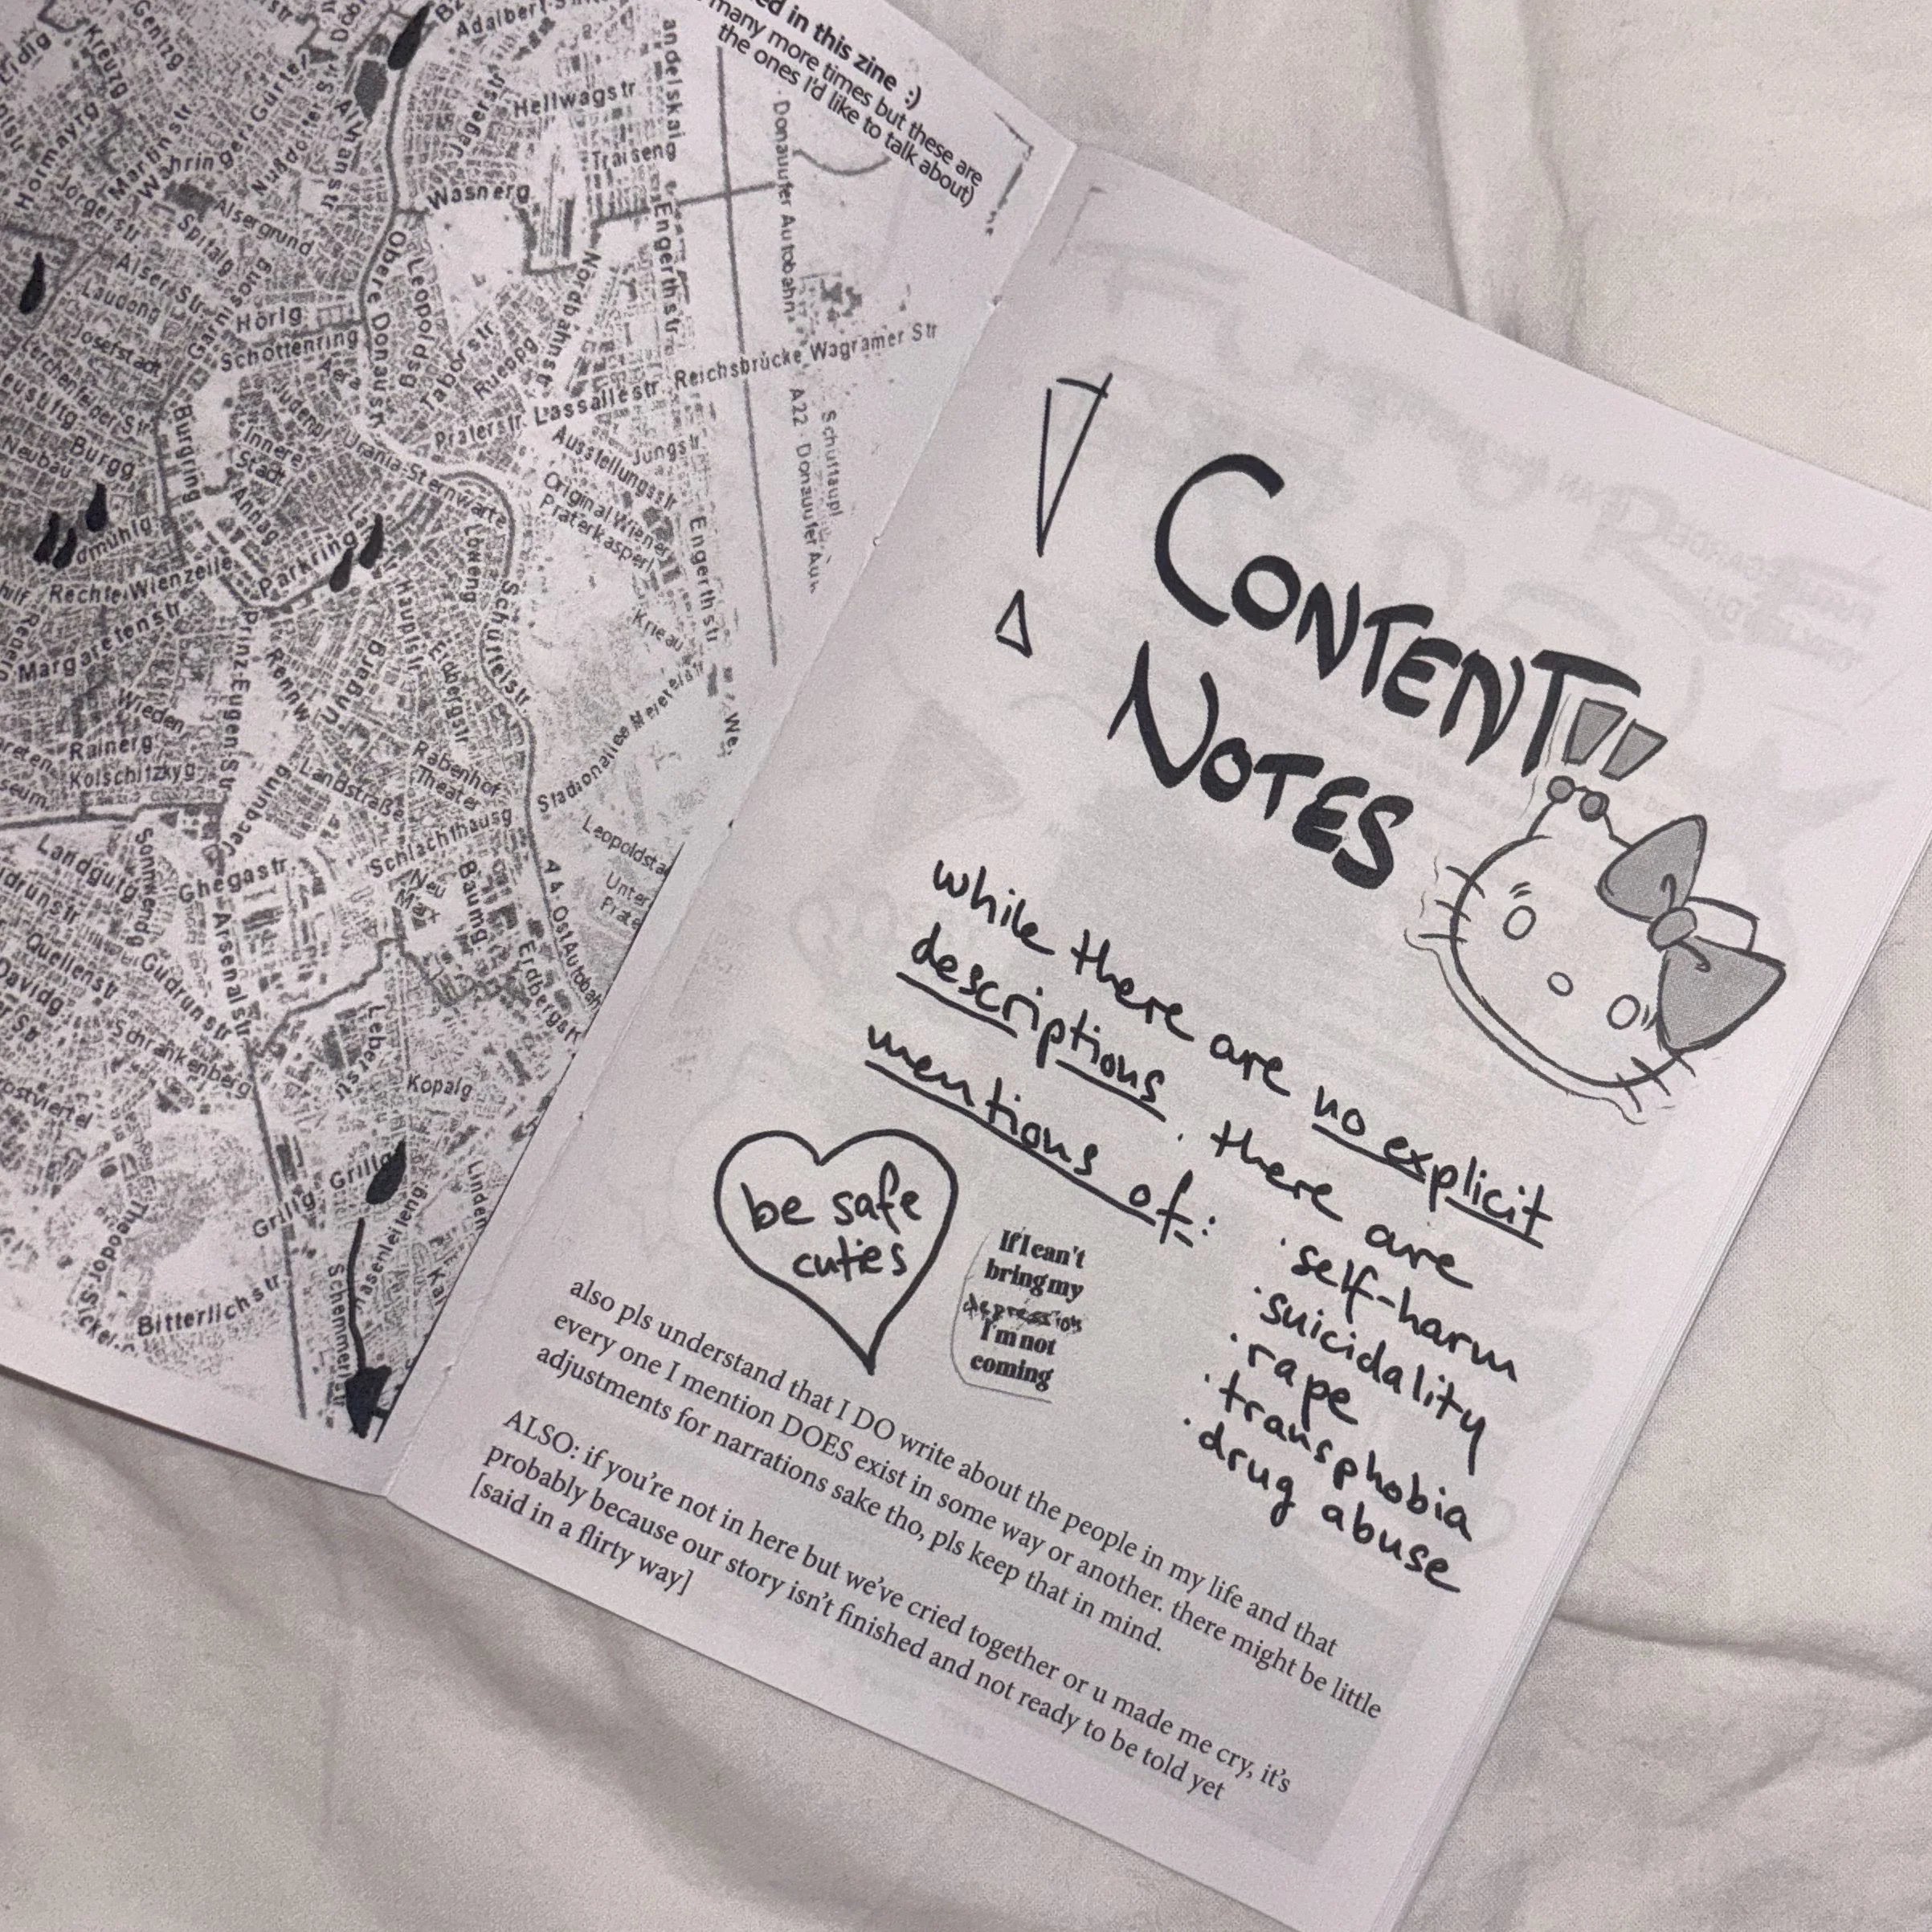 in this zine :)
many more times but these are
the ones I'd like to talk about)
Adalbert
Hellwagstr
Traiseng
Jägerstr
Wasnerg
Kreuzg
Hormayrg
Martinstr
Währinger Gürtel
Jörgerstr
Spitalg
Alsergrund
Alser Str
Laudong
Garnisong
Hörlg
Josefstadt
Schottenring
Obere Donaustr
Leopoldsg
Taborstr
Rueppg
Nordbahnstr
Engerthstr
Donauufer Autobahn
Reichsbrücke Wagramer Str
Lassallestr
Praterstr
Ausstellungsstr
Jungstr
A22
Burgg
Neubau
Burgring
Innere
Stadt
Urania-Sternwarte
Original Wiener
Praterkasperl
Engerthstr
Rechte Wienzeile
Parkring
Löweng
Schüttelstr
Krieau
Margaretenstr
Prinz-Eugen-Str
Rennw
Ungarg
Hauptstr
Erdbergstr
Stadionallee
Meiereistr
Wieden
Rainerg
Kolschitzkyg
Rabenhof
Theater
Jacquing
Landstraße
Schlachthausg
Landgutg
Sonnwendg
Ghegastr
Arsenalstr
Neu
Marx
Baumg
A4 Ost Autobah
Unter
Quellenstr
Davidg
Gudrunstr
Schrankenberg
Leberstr
Kopalg
Grillg
Grillg
Bitterlichstr
CONTENT
NOTES
while there are no explicit
descriptions. there are
mentions of:
· self-harm
· suicidality
· rape
· transphobia
· drug abuse
be safe
cuties
If I can't
bring my
depression
I'm not
coming
also pls understand that I DO write about the people in my life and that
every one I mention DOES exist in some way or another. there might be little
adjustments for narrations sake tho, pls keep that in mind.
ALSO: if you're not in here but we've cried together or u made me cry, it's
probably because our story isn't finished and not ready to be told yet
[said in a flirty way]